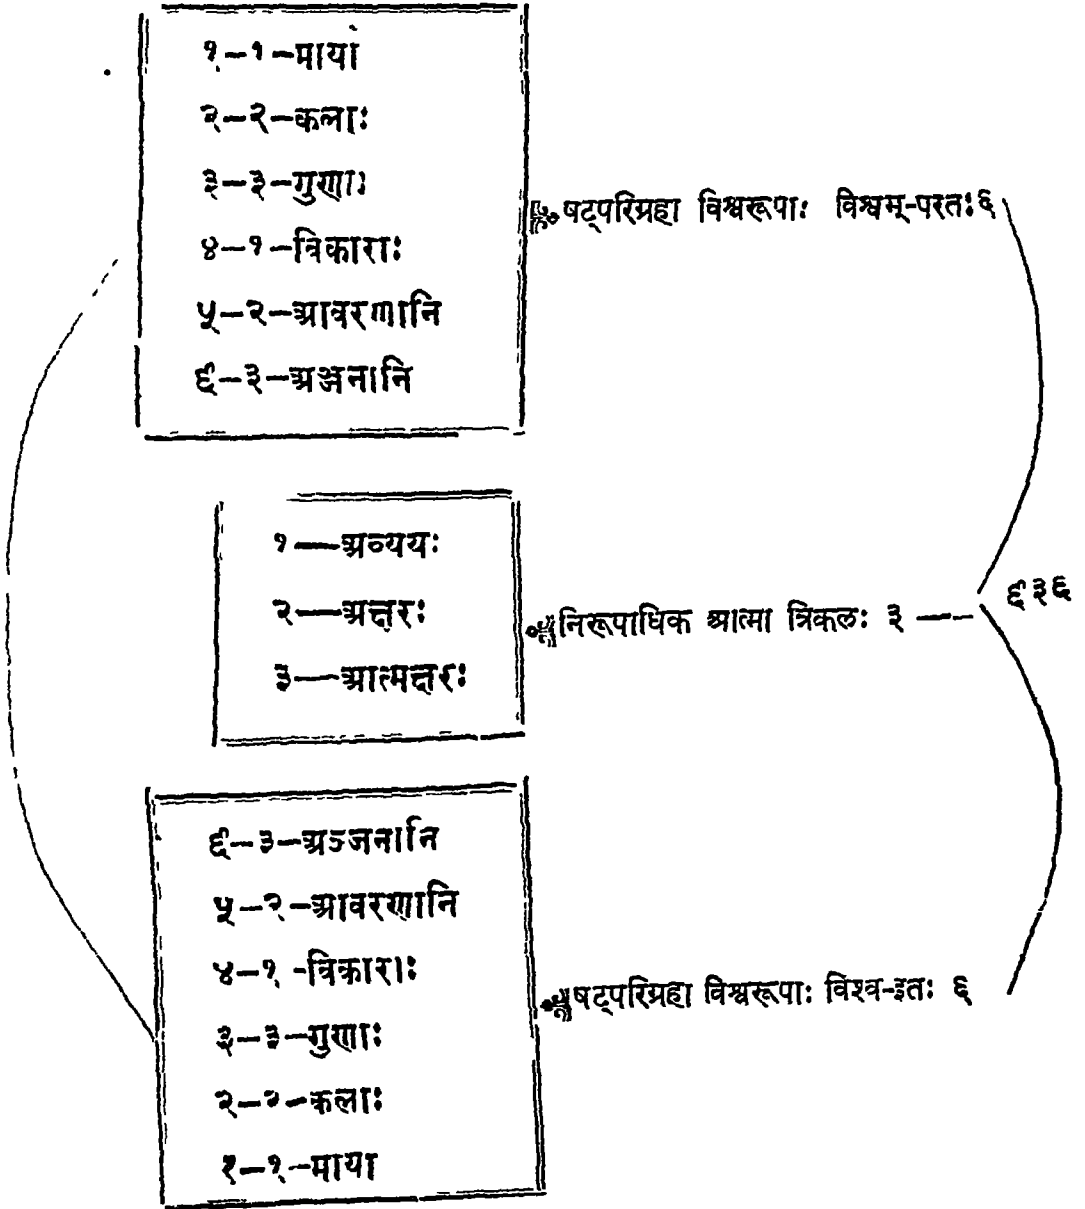 १–१–माया
२–२–कलाः
३–३–गुणाः
४–१–विकाराः
५–२–आवरणानि
६–३–अञ्जनानि
षट्परिग्रहा विश्वरूपाः विश्वम्-परतः ६
१—अव्ययः
२—अक्षरः
३—आत्मक्षरः
निरूपाधिक आत्मा त्रिकलः ३
६३६
६–३–अञ्जनानि
५–२–आवरणानि
४–१–विकाराः
३–३–गुणाः
२–२–कलाः
१–१–माया
षट्परिग्रहा विश्वरूपाः विश्व-इतः ६